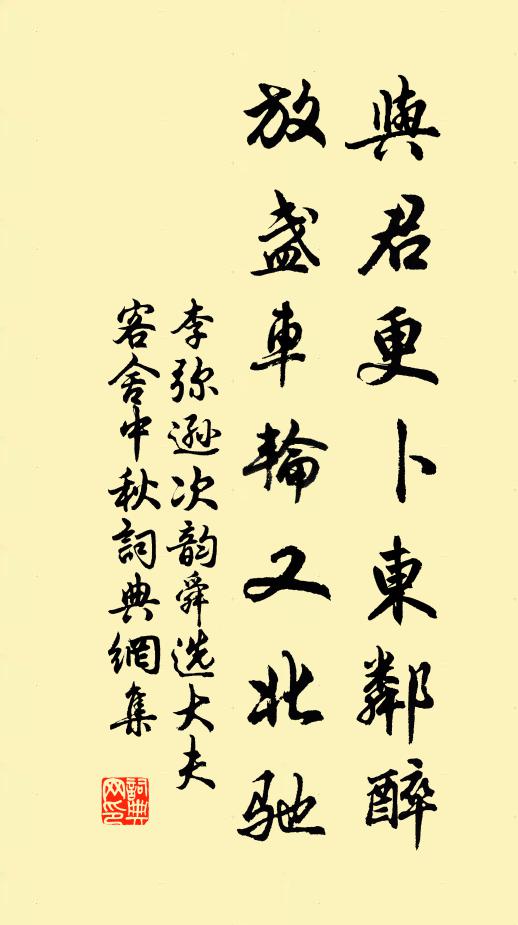 與君更卜東鄰醉
放盞車輪又北馳
李弥遜次韵舜选大夫
客舍中秋詞典網集
詞典网印